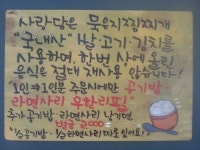 사랑담은 묵은지찌개
"국내산" 쌀·고기·김치를
사용하며, 한번 상에 올린
음식은 절대 재사용 않습니다!
1인⇒1인분 주문시에만 공기밥
라면사리 무한리필
추가공기밥·라면사리 남기면
벌금
½공기밥·½라면사리 따도 있어요!